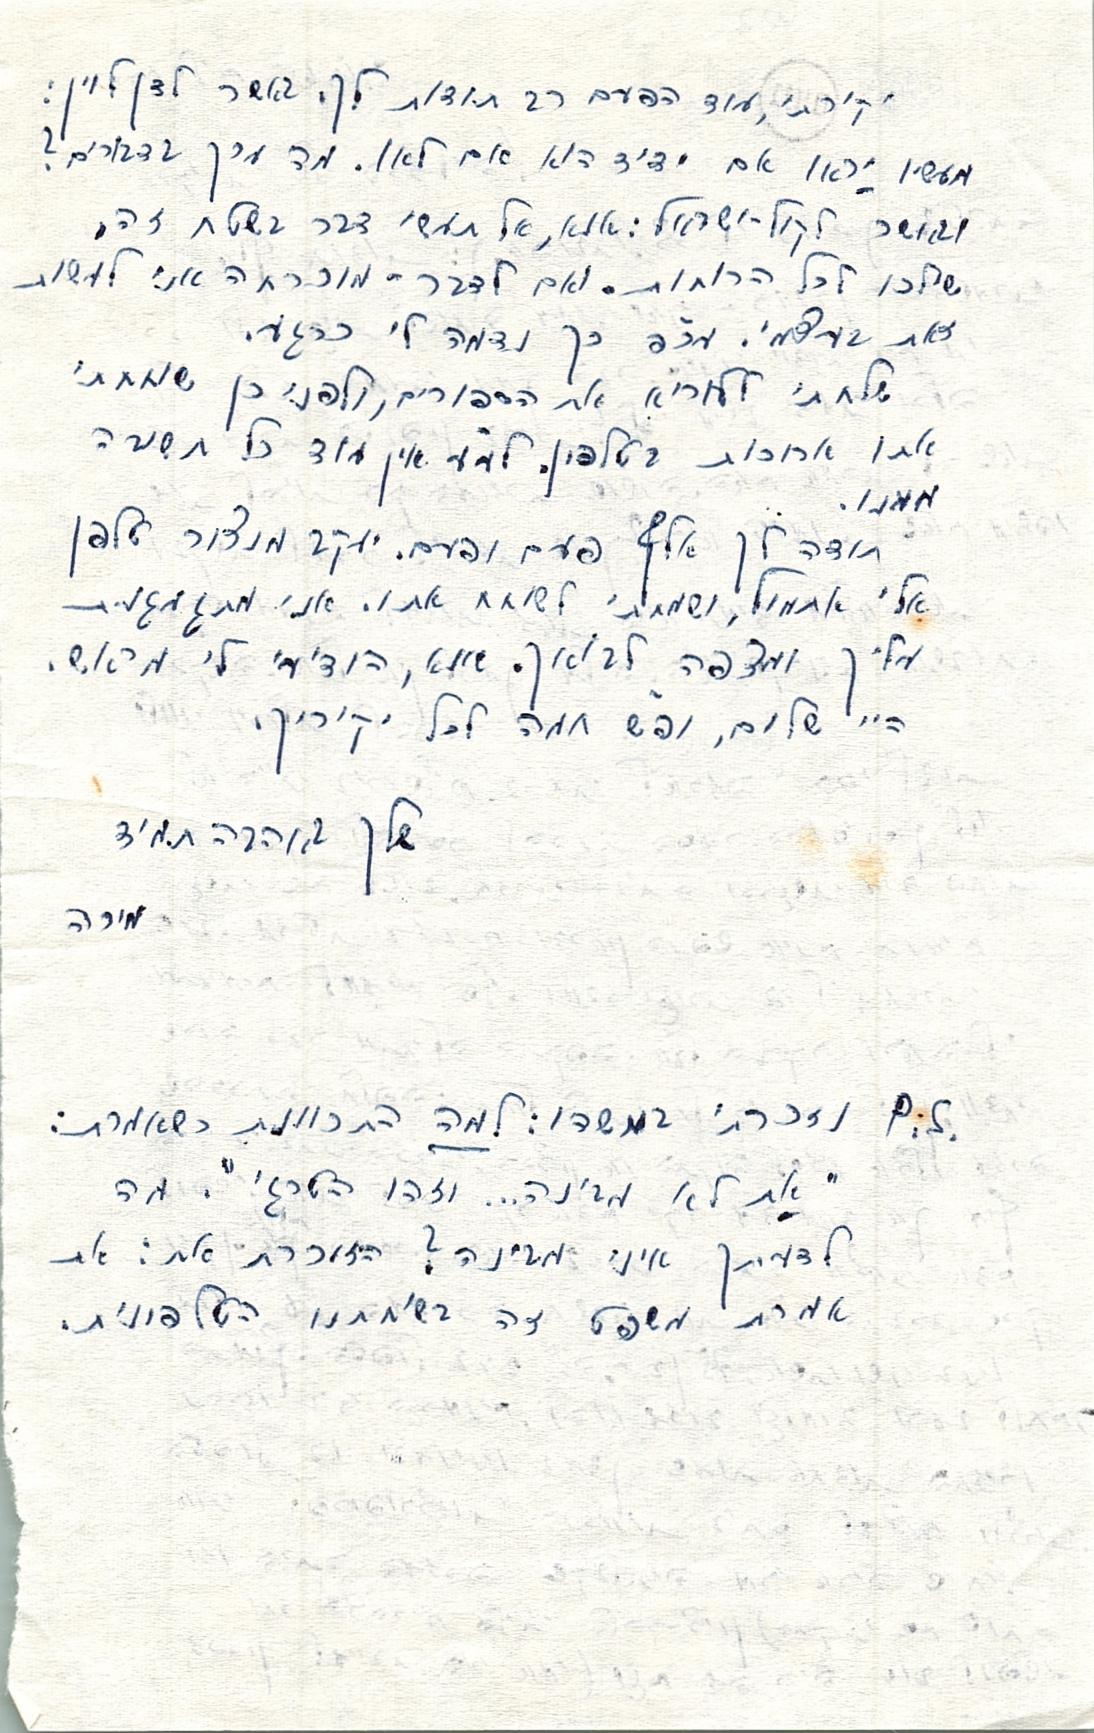 יקירתי, עוד הפעם רב תודות לך. באשר לדן לוין:
מעשיו יראו אם ידיד הוא אם לאו. מה ערך בדבורים?
ובאשר לקול-ישראל: אנא, אל תעשי דבר בשטח זה,
שילכו לכל הרוחות. ואם לדבר - מוכרחה אני לעשות
זאת בעצמי. עכ"פ כך נדמה לי כרגע.
שלחתי לעוריא את הספורים, ולפני כן שוחחתי
אתו ארוכות בטלפון. לע"ע אין עוד כל תשובה
ממנו.
תודה לך אלף פעם ופעם. יעקב מנצור טלפן
אלי אתמול, ושמחתי לשוחח אתו. אני מתגעגעת
עליך ומצפה לבואך. אנא, הודיעי לי מראש.
היי שלום, ופ"ש חמה לכל יקיריך.
שלך באהבה תמיד
מירה
נ.ב. נזכרתי במשהו: למה התכוונת כשאמרת:
"את לא מבינה... וזהו הטרגי". מה
לדעתך איני מבינה? הזוכרת את? את
אמרת משפט זה בשיחתנו הטלפונית.